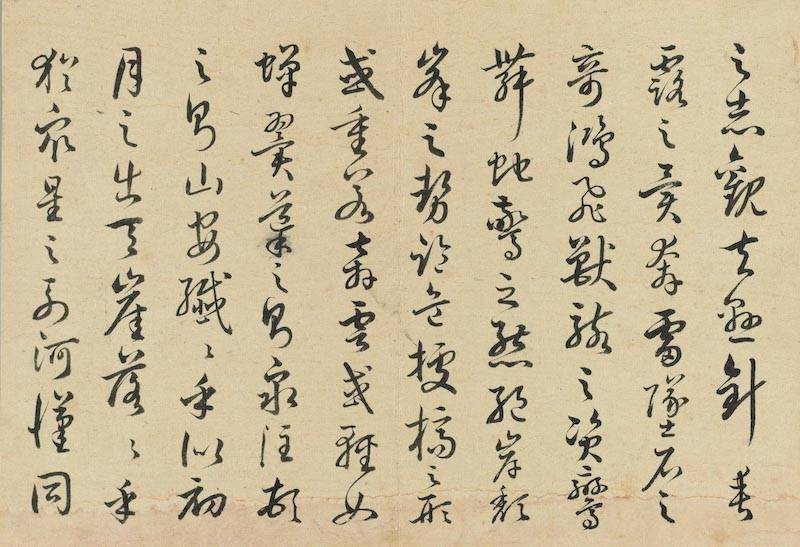 之志觀夫懸針垂
露之異奔雷墜石之
奇鴻飛獸駭之資鸞
舞蛇驚之態絕岸頹
峯之勢臨危據槁之形
或重若崩雲或輕如
蟬翼導之則泉注頓
之則山安纖〻乎似初
月之出天崖落〻乎
猶眾星之列河漢同